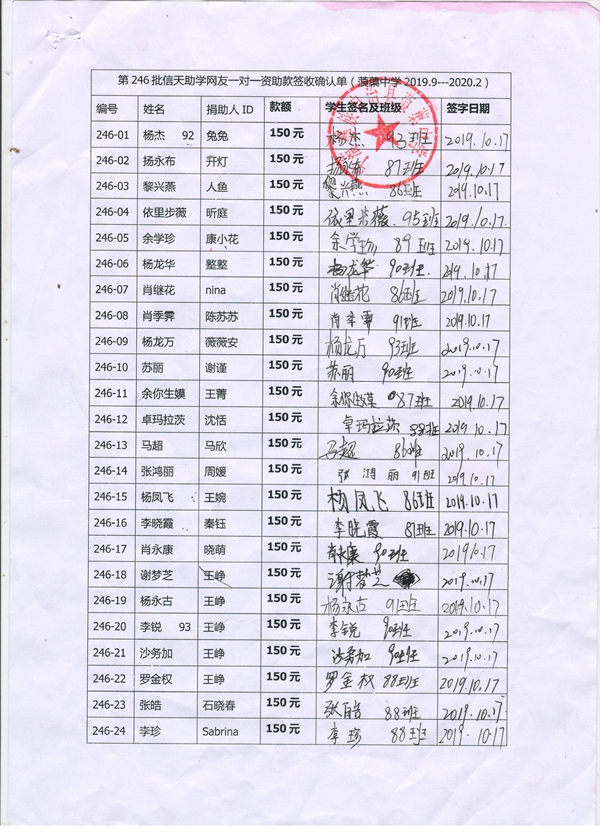 第 246 批信天助学网友一对一资助款签收确认单（蕻蕻中学 2019.9---2020.2）
编号 姓名 捐助人 ID 款额 学生签名及班级 签字日期
246-01 杨杰 92 兔兔 150 元 杨杰 93班 2019.10.17
246-02 扬永布 开灯 150 元 扬永布 87班 2019.10.17
246-03 黎兴燕 人鱼 150 元 黎兴燕 86班 2019.10.17
246-04 依里步薇 昕庭 150 元 依里步薇 95班 2019.10.17
246-05 余学珍 康小花 150 元 余学珍 89班 2019.10.17
246-06 杨龙华 整整 150 元 杨龙华 90班 2019.10.17
246-07 肖继花 nina 150 元 肖继花 86班 2019.10.17
246-08 肖季霁 陈苏苏 150 元 肖季霁 91班 2019.10.17
246-09 杨龙万 薇薇安 150 元 杨龙万 93班 2019.10.17
246-10 苏丽 谢谨 150 元 苏丽 90班 2019.10.17
246-11 余你生嫫 王菁 150 元 余你生嫫 87班 2019.10.17
246-12 卓玛拉茨 沈恬 150 元 卓玛拉茨 88班 2019.10.17
246-13 马超 马欣 150 元 马超 86班 2019.10.17
246-14 张鸿丽 周媛 150 元 张鸿丽 91班 2019.10.17
246-15 杨凤飞 王婉 150 元 杨凤飞 86班 2019.10.17
246-16 李晓霞 秦钰 150 元 李晓霞 87班 2019.10.17
246-17 肖永康 晓萌 150 元 肖永康 90班 2019.10.17
246-18 谢梦芝 王峥 150 元 谢梦芝 2019.10.17
246-19 杨永古 王峥 150 元 杨永古 91班 2019.10.17
246-20 李锐 93 王峥 150 元 李锐 90班 2019.10.17
246-21 沙务加 王峥 150 元 沙务加 90班 2019.10.17
246-22 罗金权 王峥 150 元 罗金权 88班 2019.10.17
246-23 张皓 石晓春 150 元 张皓 88班 2019.10.17
246-24 李珍 Sabrina 150 元 李珍 88班 2019.10.17